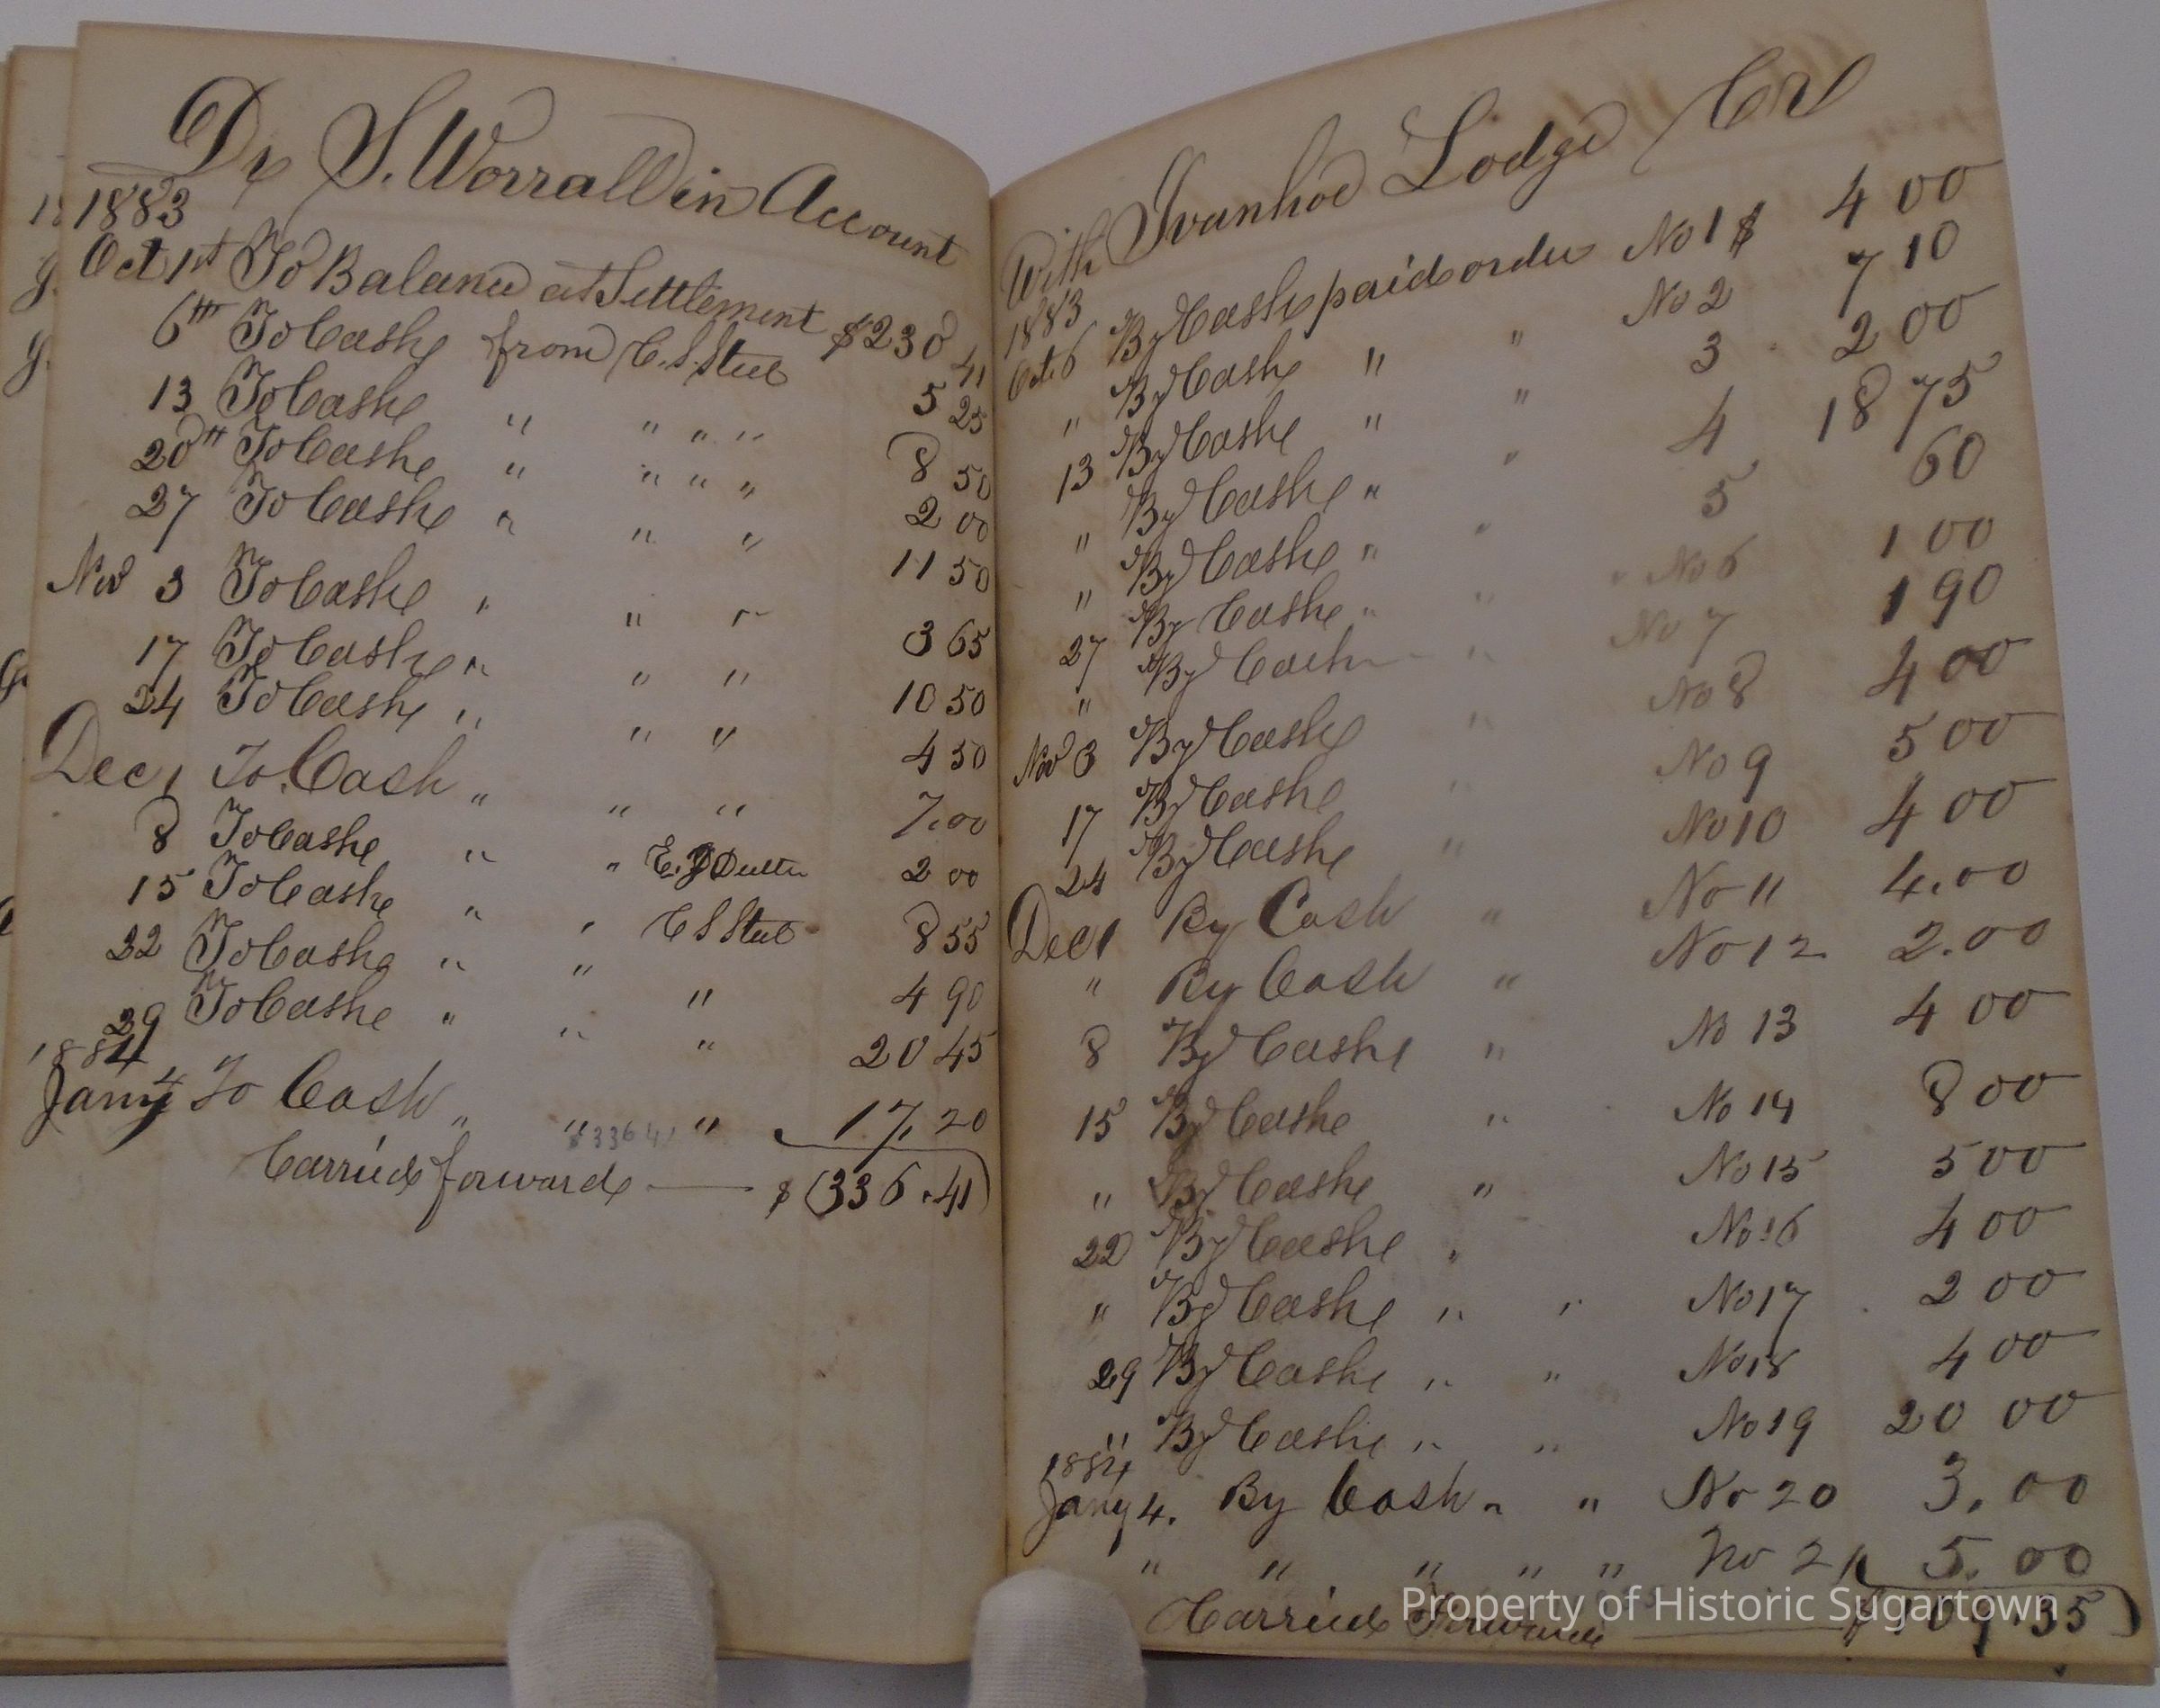 Dr S. Worrall in Account
1883
Oct 1st To Balance at Settlement $230 41
6th To Cash from C. S. Steel 5 25
13 To Cash " " " " 8 50
20th To Cash " " " " 2 00
27 To Cash " " " 11 50
Nov 3 To Cash " " " 3 65
17 To Cash " " " 10 50
24 To Cash " " " 4 50
Dec 1 To Cash " " " 7.00
8 To Cash " " E. J Dutton 2 00
15 To Cash " " C S Steel 8 55
22 To Cash " " " 4 90
29 To Cash " " " 20 45
1884
Jany 4 To Cash " " " 17.20
$336 41
Carried forward — $(336.41)
With Ivanhoe Lodge Cr
1883
Oct 6 By Cash paid order No 1 $ 4 00
" By Cash " " No 2 7 10
13 By Cash " " 3 2 00
" By Cash " " 4 18 75
" By Cash " " 5 60
27 By Cash " " No 6 1 00
" By Cash " No 7 1 90
Nov 3 By Cash " No 8 4 00
17 By Cash " No 9 5 00
24 By Cash " No 10 4 00
Dec 1 By Cash " No 11 4.00
" By Cash " No 12 2.00
8 By Cash " No 13 4 00
15 By Cash " No 14 8 00
" By Cash " No 15 5 00
22 By Cash " No 16 4 00
" By Cash " " No 17 2 00
29 By Cash " " No 18 4 00
" By Cash " " No 19 20 00
1884
Jany 4. By Cash " " No 20 3.00
" " " " " No 21 5.00
Carried Forward $109.35
Property of Historic Sugartown